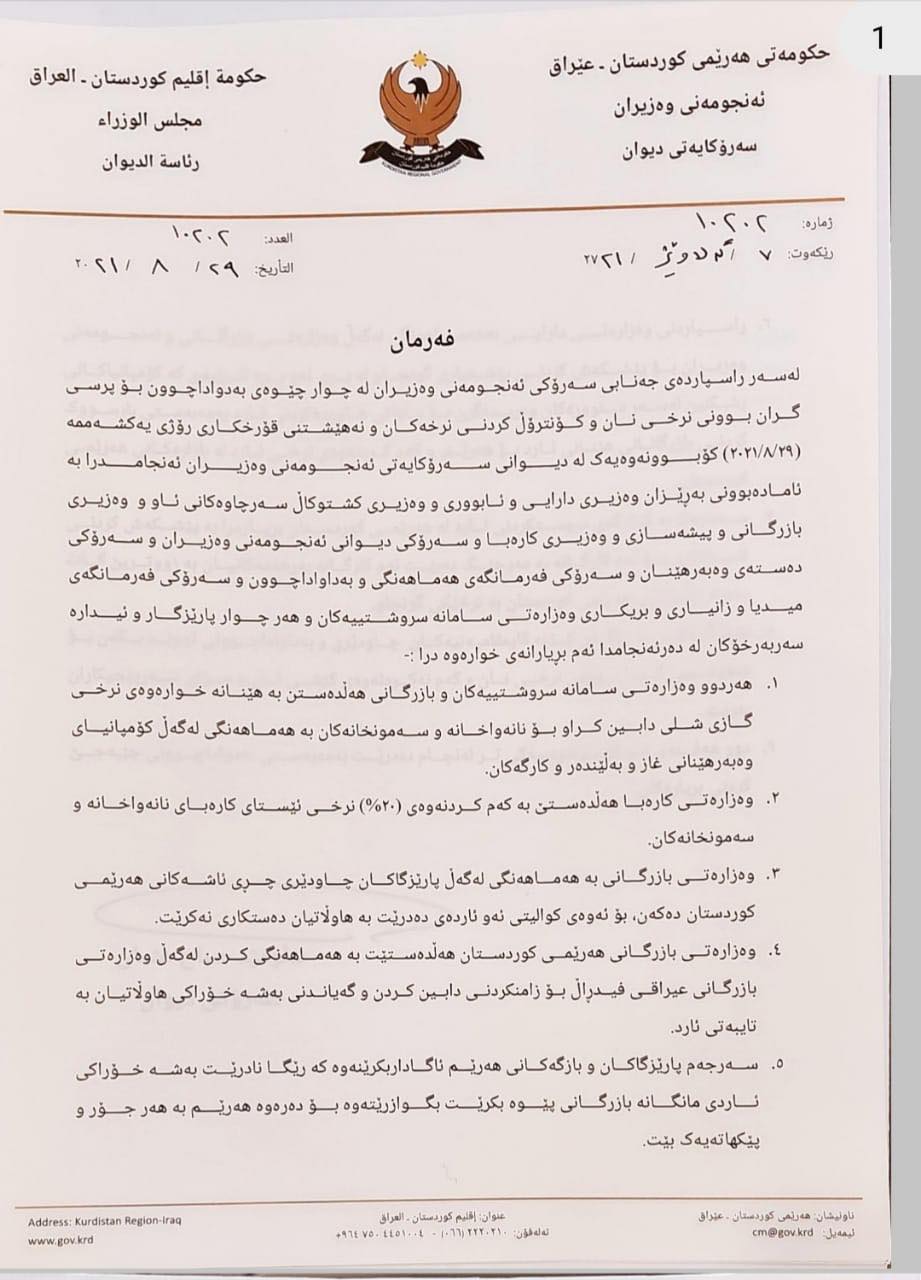 1
حکومەتی هەرێمی کوردستان ـ عێراق
ئەنجومەنی وەزیران
سەرۆکایەتی دیوان
حكومة إقليم كوردستان ـ العراق
مجلس الوزراء
رئاسة الديوان
KURDISTAN REGIONAL GOVERNMENT
ژمارە: ١٠٢٠٢
ڕێکەوت: ٧ / گەلاوێژ / ٢٧٢١
العدد: ١٠٢٠٢
التأريخ: ٢٩ / ٨ / ٢٠٢١
فەرمان
لەسەر راسپاردەی جەنابی سەرۆکی ئەنجومەنی وەزیران لە چوار چێوەی بەدواداچوون بۆ پرسی
گران بوونی نرخی نان و کۆنترۆڵ کردنی نرخەکان و نەهێشتنی قۆرخکاری رۆژی یەکشەممە
(٢٠٢١/٨/٢٩) کۆبوونەوەیەک لە دیوانی سەرۆکایەتی ئەنجومەنی وەزیران ئەنجامدرا بە
ئامادەبوونی بەڕێزان وەزیری دارایی و ئابووری و وەزیری کشتوکاڵ سەرچاوەکانی ئاو و وەزیری
بازرگانی و پیشەسازی و وەزیری کارەبا و سەرۆکی دیوانی ئەنجومەنی وەزیران و سەرۆکی
دەستەی وەبەرهێنان و سەرۆکی فەرمانگەی هەماهەنگی و بەداواداچوون و سەرۆکی فەرمانگەی
میدیا و زانیاری و بریکاری وەزارەتی سامانە سروشتییەکان و هەر چوار پارێزگار و ئیدارە
سەربەرخۆکان لە دەرئەنجامدا ئەم بڕیارانەی خوارەوە درا :-
١. هەردوو وەزارەتی سامانە سروشتییەکان و بازرگانی هەڵدەستن بە هێنانە خوارەوەی نرخی
گازی شلی دابین کراو بۆ نانەواخانە و سەمونخانەکان بە هەماهەنگی لەگەڵ کۆمپانیای
وەبەرهێنانی غاز و بەڵێندەر و کارگەکان.
٢. وەزارەتی کارەبا هەڵدەستێ بە کەم کردنەوەی (٢٠%) نرخی ئێستای کارەبای نانەواخانە و
سەمونخانەکان.
٣. وەزارەتی بازرگانی بە هەماهەنگی لەگەڵ پارێزگاکان چاودێری چڕی ئاشەکانی هەرێمی
کوردستان دەکەن، بۆ ئەوەی کوالیتی ئەو ئاردەی دەدرێت بە هاوڵاتیان دەستکاری نەکرێت.
٤. وەزارەتی بازرگانی هەرێمی کوردستان هەڵدەستێت بە هەماهەنگی کردن لەگەڵ وەزارەتی
بازرگانی عیراقی فیدراڵ بۆ زامنکردنی دابین کردن و گەیاندنی بەشە خۆراکی هاوڵاتیان بە
تایبەتی ئارد.
٥. سەرجەم پارێزگاکان و بازگەکانی هەرێم ئاگاداربکرێنەوە کە رێگا نادرێت بەشە خۆراکی
ئاردی مانگانە بازرگانی پێوە بکرێت بگوازرێتەوە بۆ دەرەوە هەرێم بە هەر جۆر و
پێکهاتەیەک بێت.
ناونیشان: هەرێمی کوردستان ـ عێراق
ئیمەیل: cm@gov.krd
عنوان: إقليم كوردستان ـ العراق
تەلەفۆن: ٢٢٢٠٢١٠ (٠٦٦) - ٤٤٥١٠٠٤ ٧٥٠ ٩٦٤+
Address: Kurdistan Region-Iraq
www.gov.krd